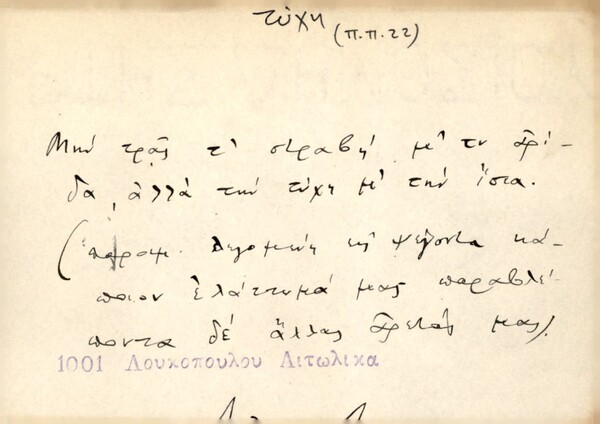 τύχη (π.π.22)
Μήν τρᾶς τ' στραβή μέ τν ἀρί-
δα, ἀλλά τήν τύχη μ' τήν ἴσια.
(παροιμ. λεγομένη εἰς ψέγοντα κά-
ποιον ἐλάττωμά μας παραβλέ-
ποντα δέ ἄλλας ἀρετάς μας).
1001 Λουκοπουλου Αιτωλικα